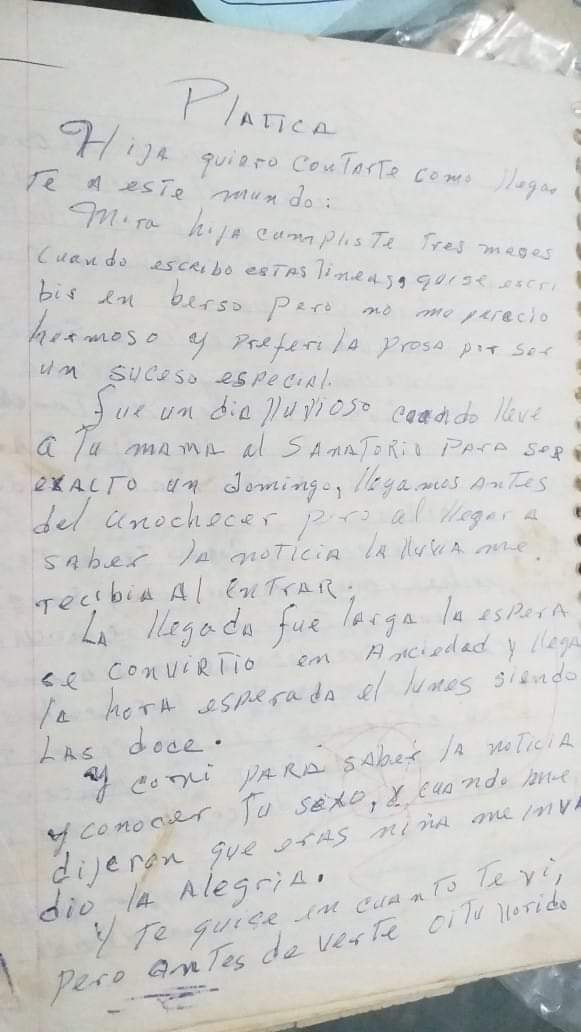 Platica
Hija quiero contarte como llegas
te a este mundo:
Mira hija cumpliste tres meses
cuando escribo estas lineas, quise escri
bir en berso pero no me parecio
hermoso y preferi la prosa por ser
un suceso especial.
fue un dia lluvioso cuando lleve
a tu mama al sanatorio para ser
exacto un domingo, llegamos antes
del anochecer pero al llegar a
saber la noticia la lluvia me
recibia al entrar.
La llegada fue larga la espera
se convirtio en anciedad y llega
la hora esperada el lunes siendo
las doce.
y corri para saber la noticia
y conocer tu sexo, y cuando me
dijeron que eras niña me inva
dio la alegria.
y te quise en cuanto te vi,
pero antes de verte oi tu llorido